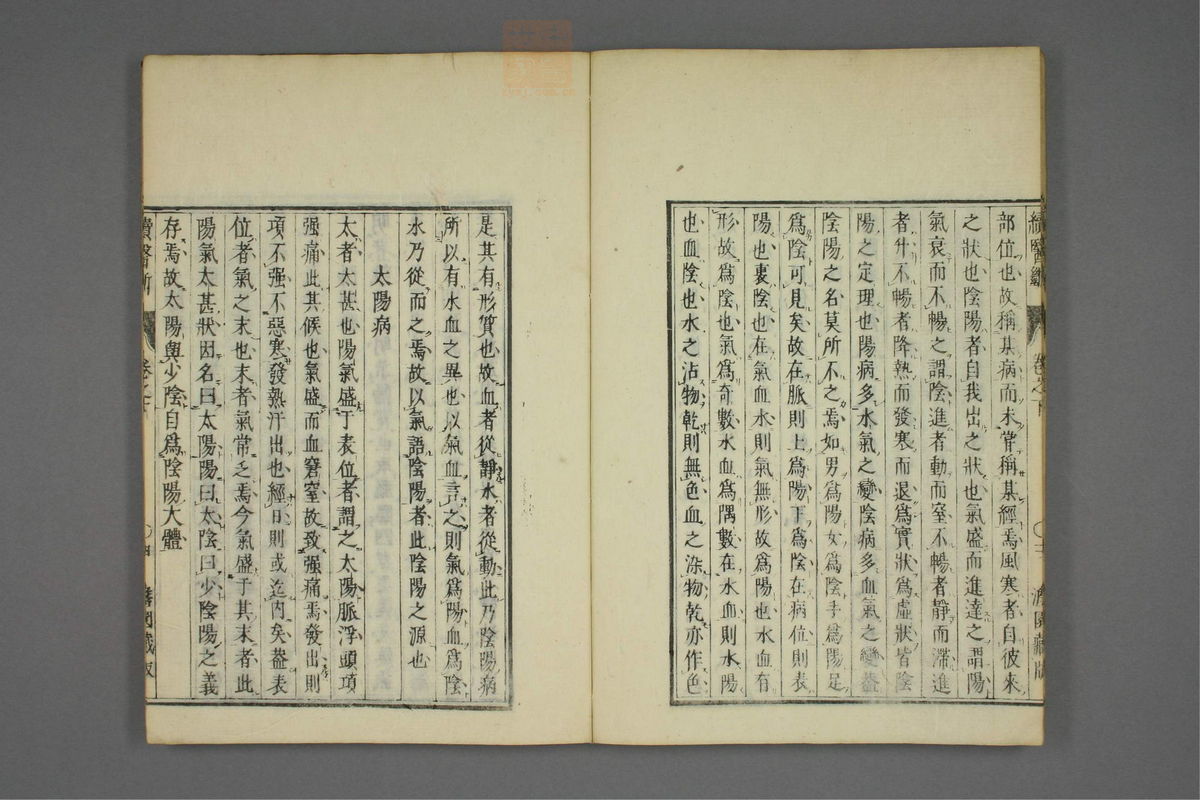 部位也故稱某病而未嘗稱某經焉風寒者自彼來
之狀也陰陽者自我出之狀也氣盛而進達之謂陽
氣衰而不暢之謂陰進者動而窒不暢者靜而滯進
者升不暢者降熱而發寒而退爲實狀爲虛狀皆陰
陽之定理也陽病多水氣之變陰病多血氣之變蓋
陰陽之名莫所不之焉如男爲陽女爲陰手爲陽足
爲陰可見矣故在脈則上爲陽下爲陰在病位則表
陽也裏陰也在氣血水則氣無形故爲陽也水血有
形故爲陰也氣爲奇數水血爲隅數在水血則水陽
也血陰也水之沾物乾則無色血之染物乾亦作色
是其有形質也故血者從靜水者從動此乃陰陽病
所以有水血之異也以氣血言之則氣爲陽血爲陰
水乃從而之焉故以氣語陰陽者此陰陽之源也
太陽病
太者太甚也陽氣盛于表位者謂之太陽脈浮頭項
强痛此其候也氣盛而血窘窒故致强痛焉發出則
項不强不惡寒發熱汗出也經日則或迄內矣蓋表
位者氣之末也末者氣常乏焉今氣盛于其末者此
陽氣太甚狀因名曰太陽陽曰太陰曰少陰陽之義
存焉故太陽與少陰自爲陰陽大體
續醫斷 卷之下 四